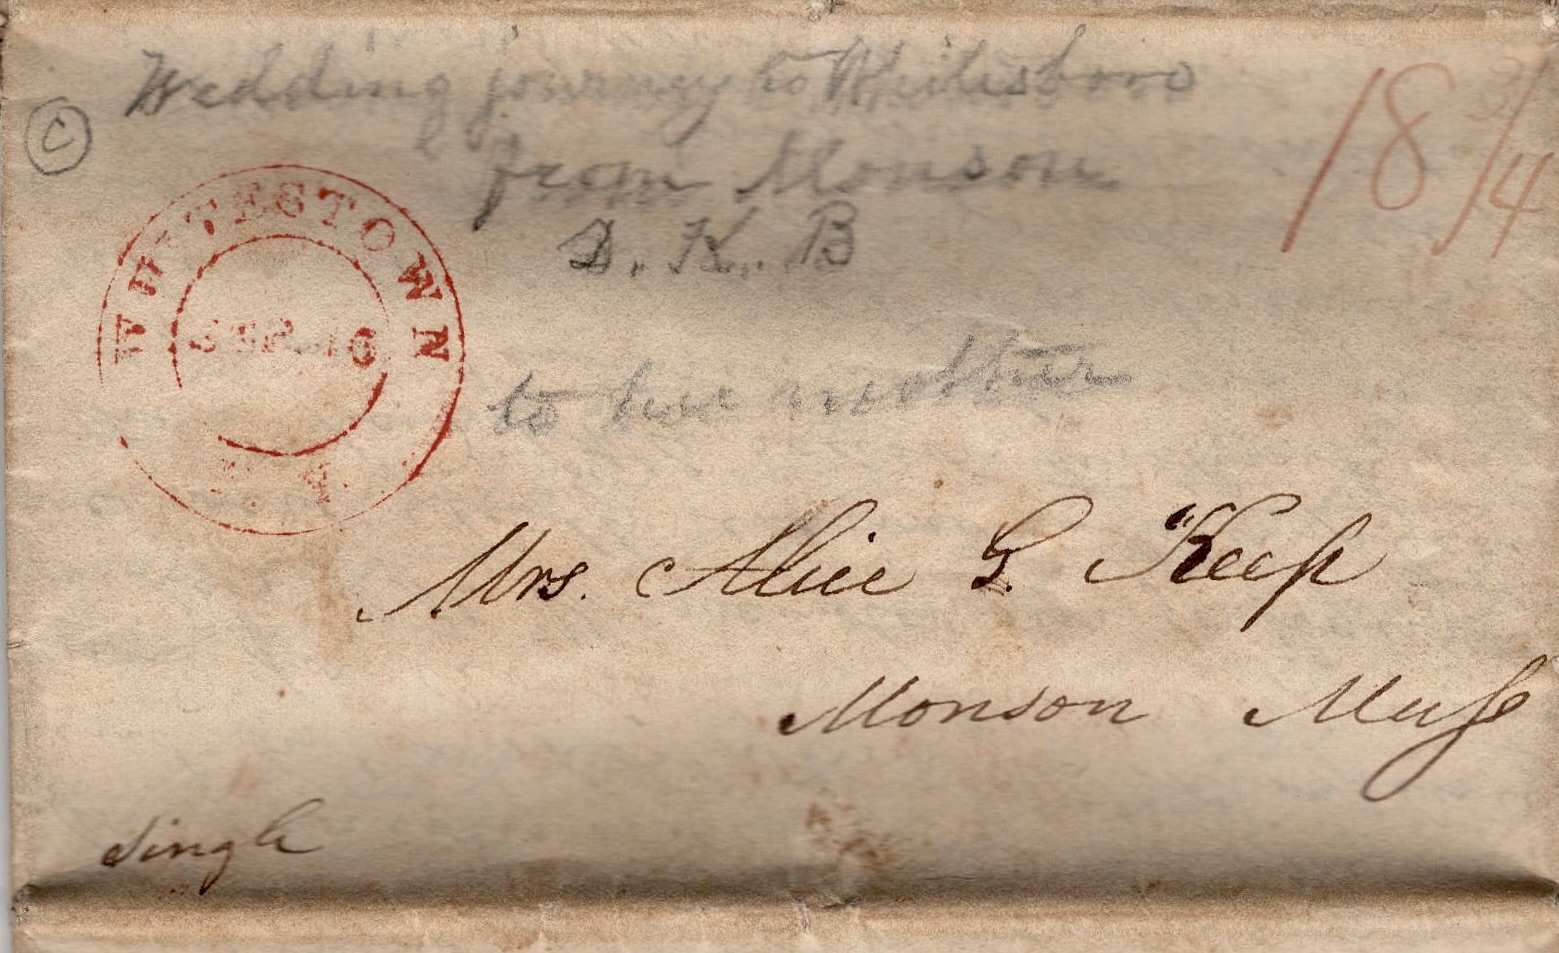 Wedding journey to Whitesboro
18 3/4
C
from Monson
D. K. B
WHITESTOWN
SEP 16
N.Y.
to her mother
Mrs. Alice G. Keep
Monson Mass
Single